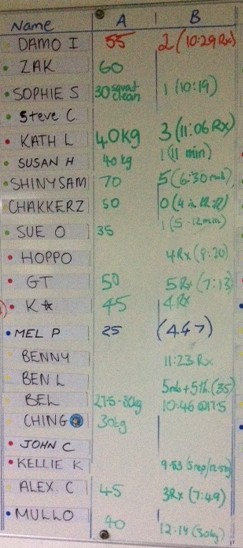 Name A B
DAMO I 55 2 (10:29 Rx)
ZAK 60
SOPHIE S 30 squat clean 1 (10:19)
Steve C
KATH L 40kg 3 (11:06 Rx)
SUSAN H 40 kg 1 (11 min)
SHINYSAM 70 5 (6:30
CHAKKERZ 50
SUE O 35 1 (5-12min)
HOPPO 4Rx (8:20)
GT 50 5Rx (7:13)
K 45 4 Rx
MEL P 25 (4:47)
BENNY 11:23 Rx
BEN L
BEL 27.5-30kg 10:46 @17.5
CHING 30kg
JOHN C
KELLIE K 9:53
ALEX. C 45 3Rx (7:49)
MULLO 40 12:14 (30kg)